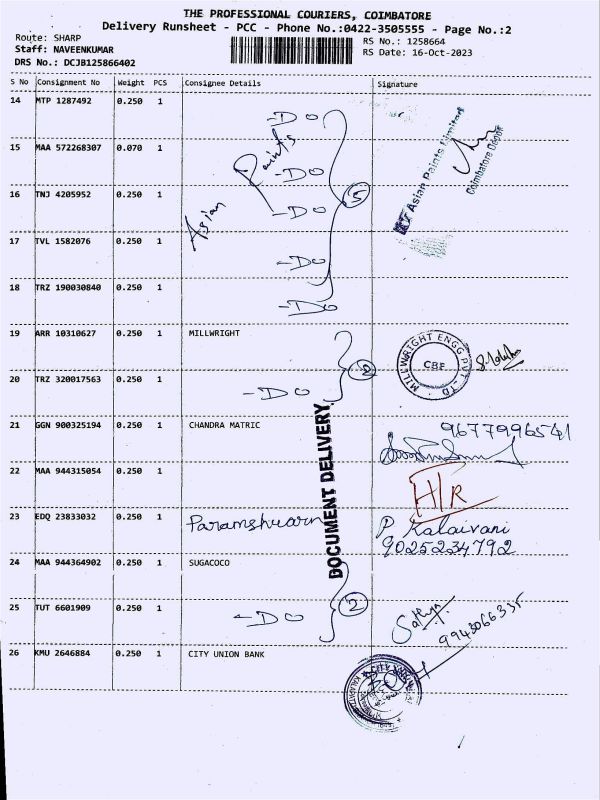 THE PROFESSIONAL COURIERS, COIMBATORE
Delivery Runsheet - PCC - Phone No.:0422-3505555 - Page No.:2
Route: SHARP
RS No.: 1258664
Staff: NAVEENKUMAR
RS Date: 16-Oct-2023
DRS No.: DCJB125866402
S No Consignment No Weight PCS Consignee Details Signature
14 MTP 1287492 0.250 1 -Do
15 MAA 572268307 0.070 1 Asian Paints -Do Asian Paints Limited Coimbatore Depot
16 TNJ 4205952 0.250 1 -Do 5
17 TVL 1582076 0.250 1 -Do
18 TRZ 190030840 0.250 1 -Do
19 ARR 10310627 0.250 1 MILLWRIGHT MILLWRIGHT ENGG PVT LTD CBE
20 TRZ 320017563 0.250 1 -Do 2
21 GGN 900325194 0.250 1 CHANDRA MATRIC 9677996541
22 MAA 944315054 0.250 1 H/R
DOCUMENT DELIVERY
23 EDQ 23833032 0.250 1 P Kalaivani
9025234792
24 MAA 944364902 0.250 1 SUGACOCO
25 TUT 6601909 0.250 1 -Do 2 Sathya 9943066335
26 KMU 2646884 0.250 1 CITY UNION BANK